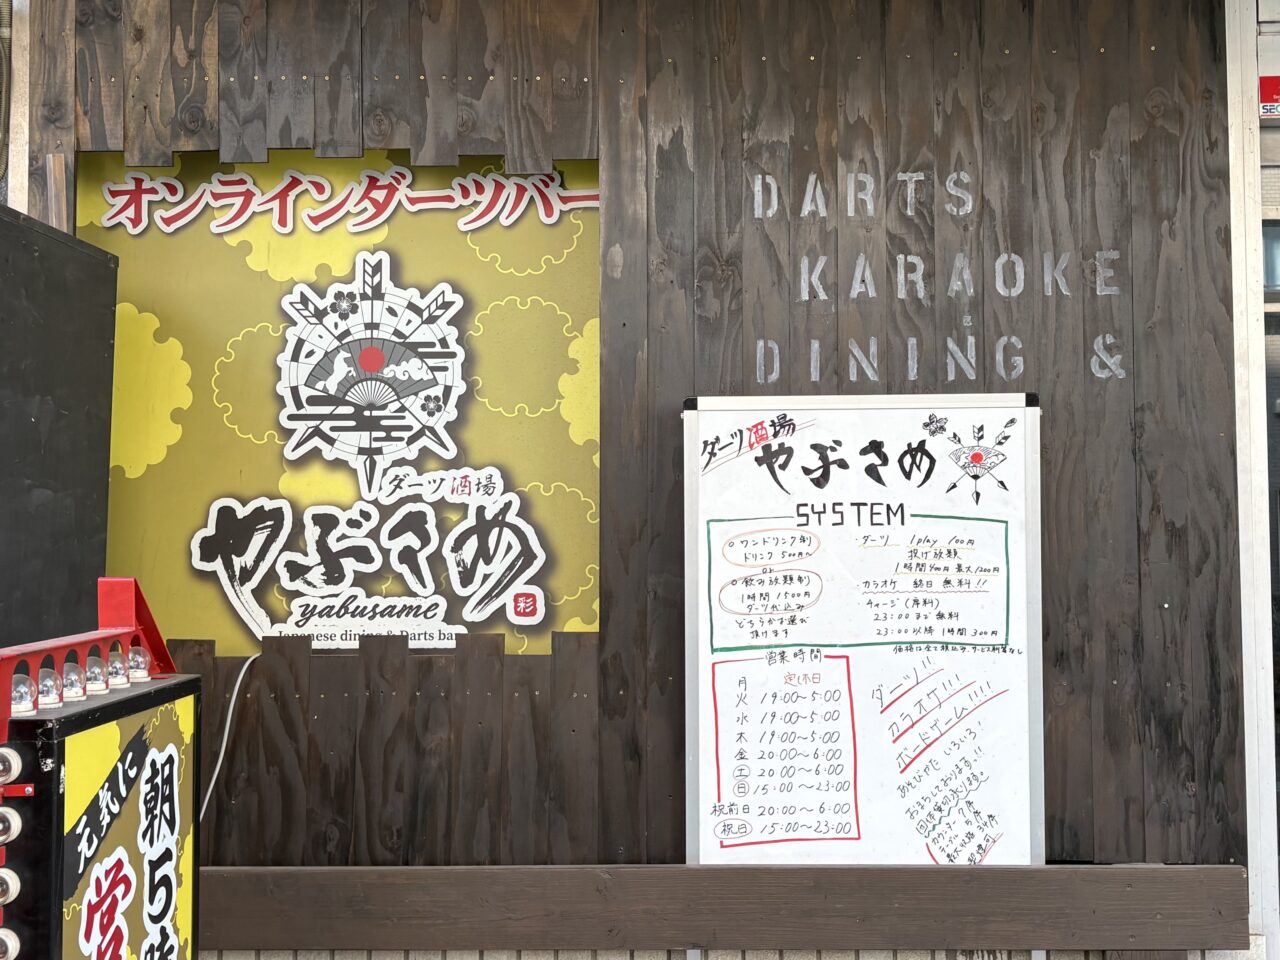 オンラインダーツバー
ダーツ酒場
やぶさめ
yabusame
彩
Japanese dining & Darts bar
DARTS
KARAOKE
DINING &
ダーツ酒場
やぶさめ
SYSTEM
○ワンドリンク制
ドリンク 500円〜
or
○飲み放題制
1時間 1500円
ダーツ代込み
どちらかお選び
頂けます
・ダーツ 1play 100円
投げ放題
1時間400円 最大1200円
・カラオケ 終日 無料!!
・チャージ(席料)
23:00まで無料
23:00以降 1時間 300円
価格は全て税込み、サービス料等なし
営業時間
月 定休日
火 19:00〜5:00
水 19:00〜5:00
木 19:00〜5:00
金 20:00〜6:00
土 20:00〜6:00
日 15:00〜23:00
祝前日 20:00〜6:00
祝日 15:00〜23:00
ダーツ!!
カラオケ!!!
ボードゲーム!!!!
あそびかた いろいろ!
おまちしております!!
団体貸切承ります。
カウンター 7席
テーブル 5席
最大収容 34席
喫煙可
元気に
朝5時
営
SEC